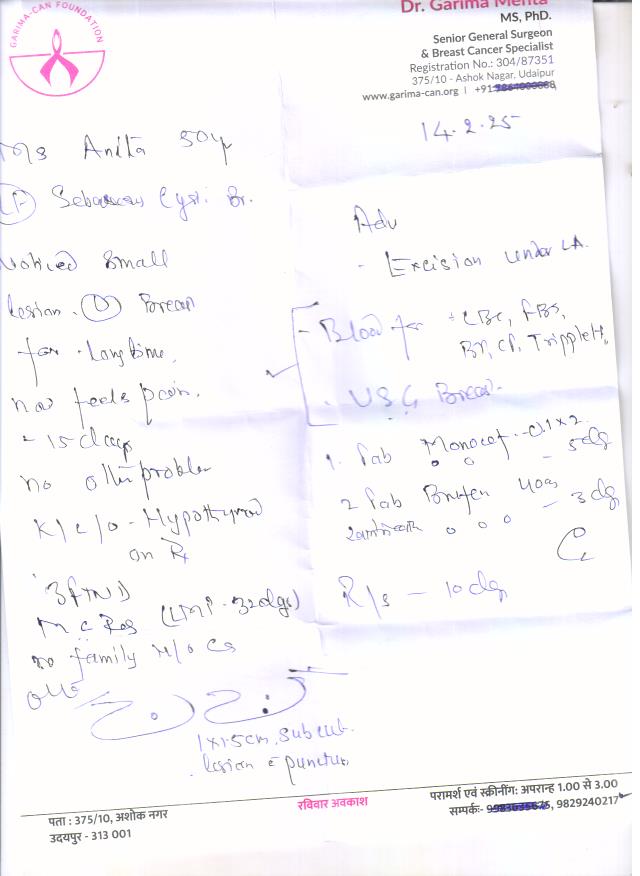 GARIMA-CAN FOUNDATION
Dr. Garima Mehta
MS, PhD.
Senior General Surgeon
& Breast Cancer Specialist
Registration No.: 304/87351
375/10 - Ashok Nagar, Udaipur
www.garima-can.org | +91
14.2.25
Ms Anita 50y
Sebaceous Cyst. Br.
Noticed small
lesion. Breast
for longtime.
now feels pain.
- 15 days
no other problem
K/c/o - Hypothyroid
on Rx
3FTND
M C Reg (LMP - 32dgs)
no family H/o Ca
O/E
1x1.5cm. Subcut.
lesion c punctum
Adv
- Excision under LA.
- Blood for : CBC, FBS,
BT, CT, Tripplett,
- USG Breast.
1. Tab Monocef - 0.1x2
- 5dg
2 Tab Brufen 400s
- 3dg
R/s - 10dg
पता : 375/10, अशोक नगर
उदयपुर - 313 001
रविवार अवकाश
परामर्श एवं स्क्रीनींग: अपरान्ह 1.00 से 3.00
सम्पर्क:- 9829240217